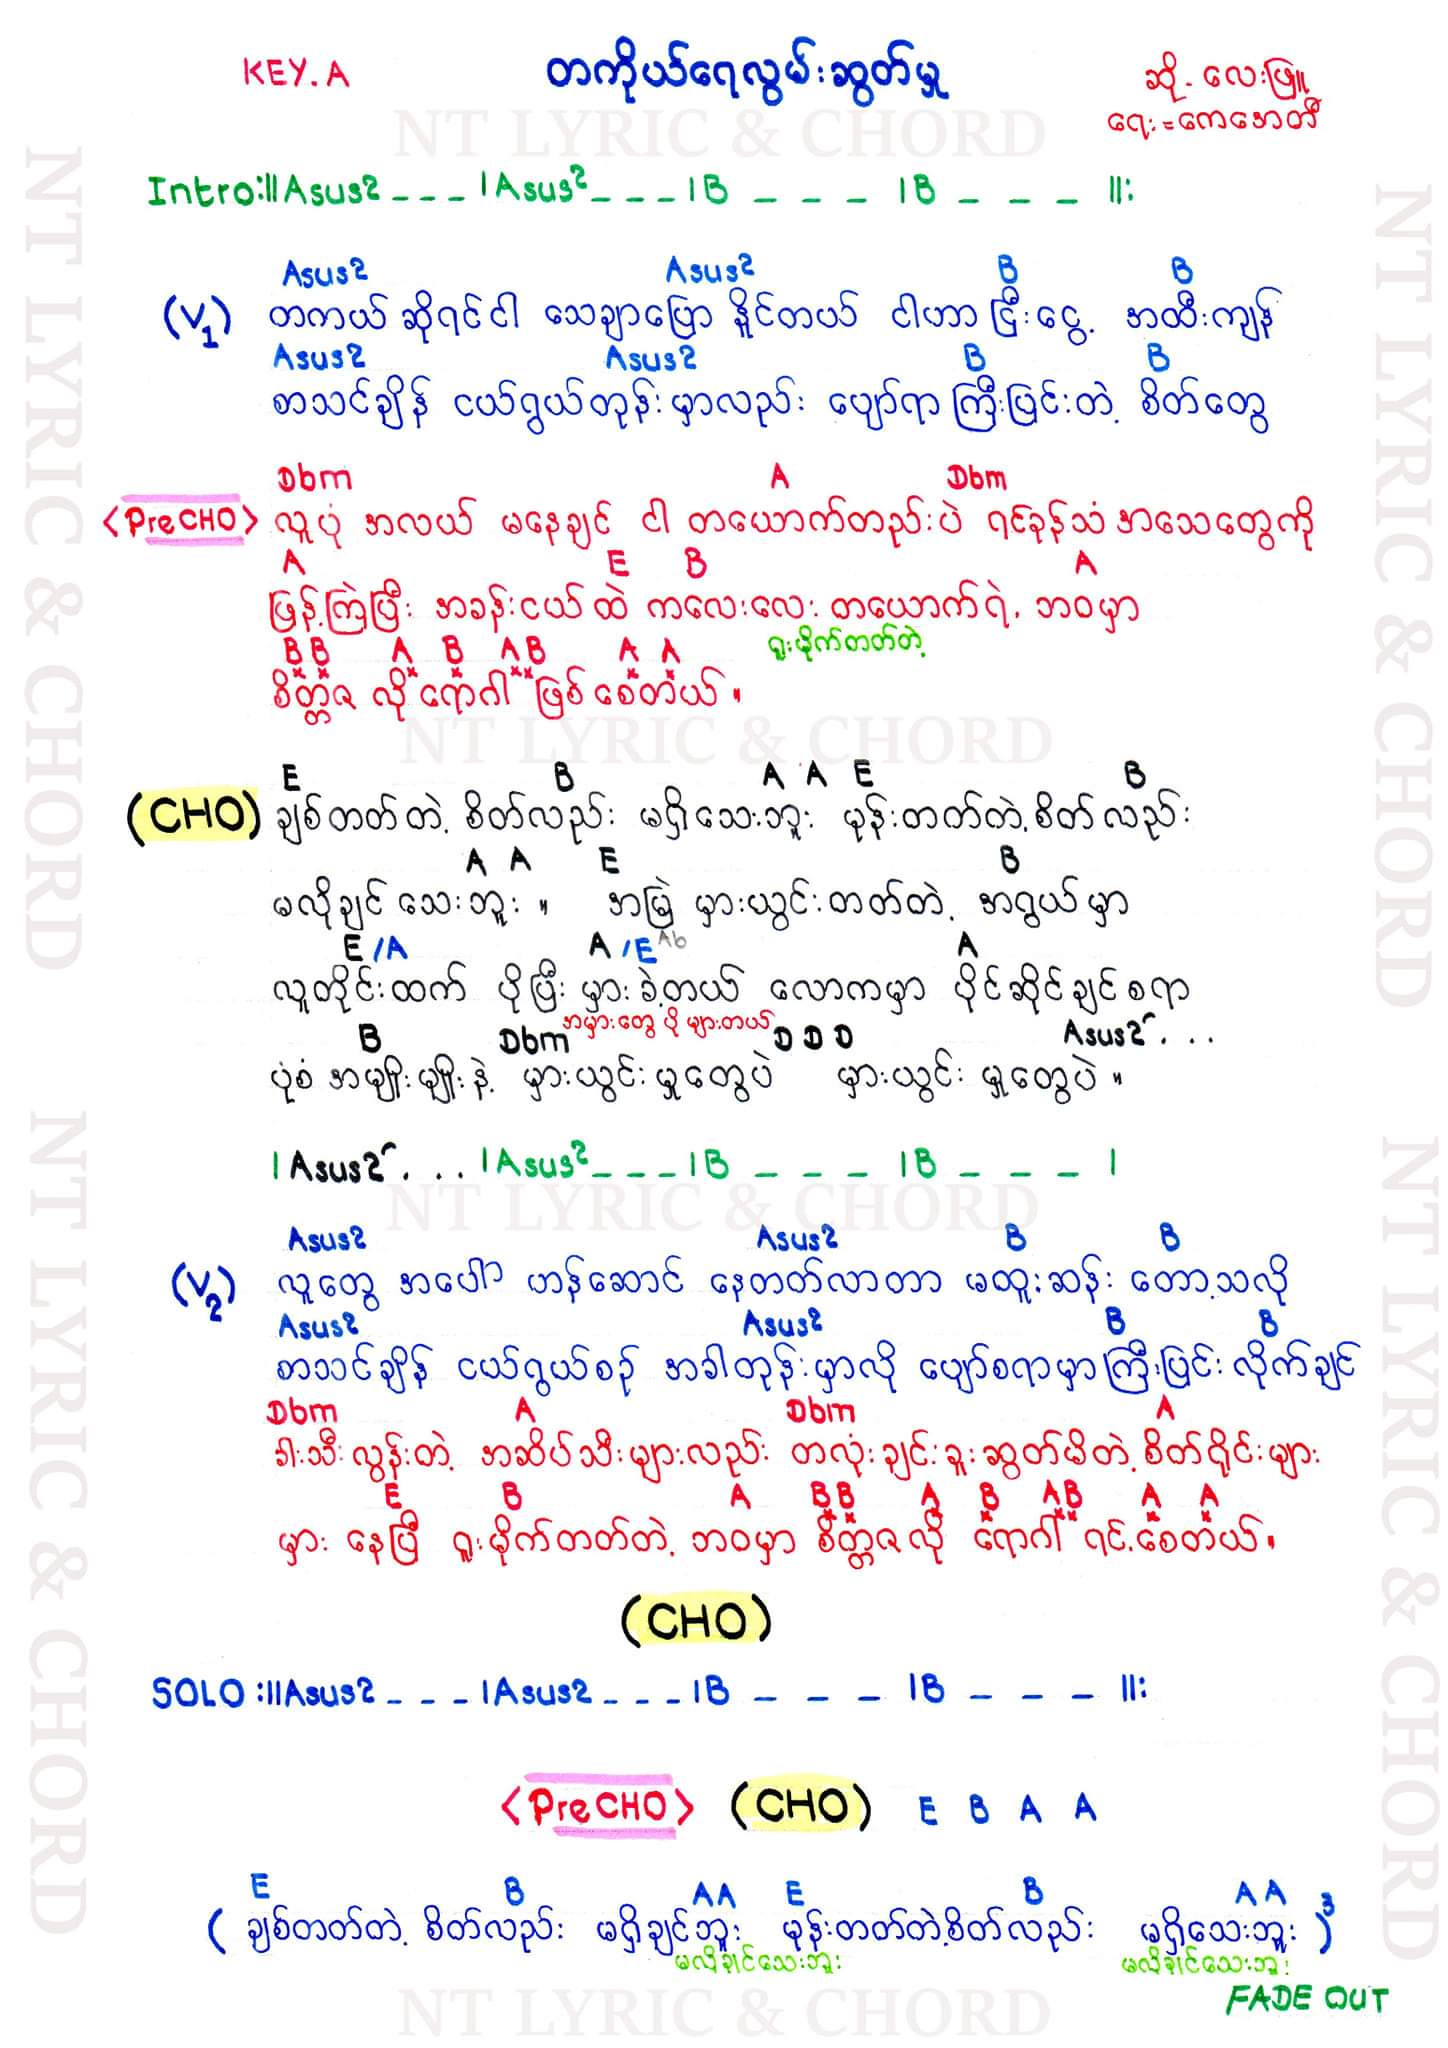 KEY.A
တကိုယ်ရေလွမ်းဆွတ်မှု
ဆို - လေးဖြူ
ရေး = ကေအေတီ
NT LYRIC & CHORD
Intro:||Asus2 _ _ _ |Asus2 _ _ _ |B _ _ _ |B _ _ _ ||:
Asus2 Asus2 B B
(V1) တကယ်ဆိုရင်ငါ သေချာပြောနိုင်တယ် ငါဟာငြီးငွေ့ အထီးကျန်
Asus2 Asus2 B B
စာသင်ချိန် ငယ်ရွယ်တုန်းမှာလည်း ပျော်ရာကြီးပြင်းတဲ့ စိတ်တွေ
Dbm A Dbm
<Pre CHO> လူပုံအလယ် မနေချင် ငါတယောက်တည်းပဲ ရင်ခုန်သံအသေတွေကို
A E B A
ဖြန့်ကြဲပြီး အခန်းငယ်ထဲ ကလေးလေး တယောက်ရဲ့ ဘဝမှာ
ရူးမိုက်တတ်တဲ့
B B A B A B A A
စိတ္တဇ လိုရောဂါ ဖြစ်စေတယ်။
NT LYRIC & CHORD
E B A A E B
(CHO) ချစ်တတ်တဲ့ စိတ်လည်း မရှိသေးဘူး မုန်းတတ်တဲ့စိတ်လည်း
A A E B
မလိုချင်သေးဘူး။ အမြဲ မှားယွင်းတတ်တဲ့ အရွယ်မှာ
E/A A/E Ab A
လူတိုင်းထက် ပိုပြီး မှားခဲ့တယ် လောကမှာ ပိုင်ဆိုင်ချင်စရာ
အမှားတွေ ပိုများတယ်
B Dbm D D D Asus2 . . .
ပုံစံအမျိုးမျိုးနဲ့ မှားယွင်းမှုတွေပဲ မှားယွင်းမှုတွေပဲ။
| Asus2 . . . |Asus2 _ _ _ |B _ _ _ |B _ _ _ |
NT LYRIC & CHORD
Asus2 Asus2 B B
(V2) လူတွေအပေါ် ဟန်ဆောင် နေတတ်လာတာ မထူးဆန်း တော့သလို
Asus2 Asus2 B B
စာသင်ချိန် ငယ်ရွယ်စဉ် အခါတုန်းမှာလို ပျော်စရာမှာကြီးပြင်းလိုက်ချင်
Dbm A Dbm A
ခါးသီးလွန်းတဲ့ အဆိပ်သီးများလည်း တလုံးချင်းခူးဆွတ်မိတဲ့ စိတ်ရိုင်းများ
E B A B B A B A B A A
မှားနေပြီ ရူးမိုက်တတ်တဲ့ ဘဝမှာ စိတ္တဇလို ရောဂါ ရင့်စေတယ်။
(CHO)
SOLO :||Asus2 _ _ _ |Asus2 _ _ _ |B _ _ _ |B _ _ _ ||:
<Pre CHO> (CHO) E B A A
E B A A E B A A
( ချစ်တတ်တဲ့ စိတ်လည်း မရှိချင်ဘူး မုန်းတတ်တဲ့စိတ်လည်း မရှိသေးဘူး )3
မလိုချင်သေးဘူး မလိုချင်သေးဘူး
FADE OUT
NT LYRIC & CHORD
NT LYRIC & CHORD
NT LYRIC & CHORD
NT LYRIC & CHORD
NT LYRIC & CHORD